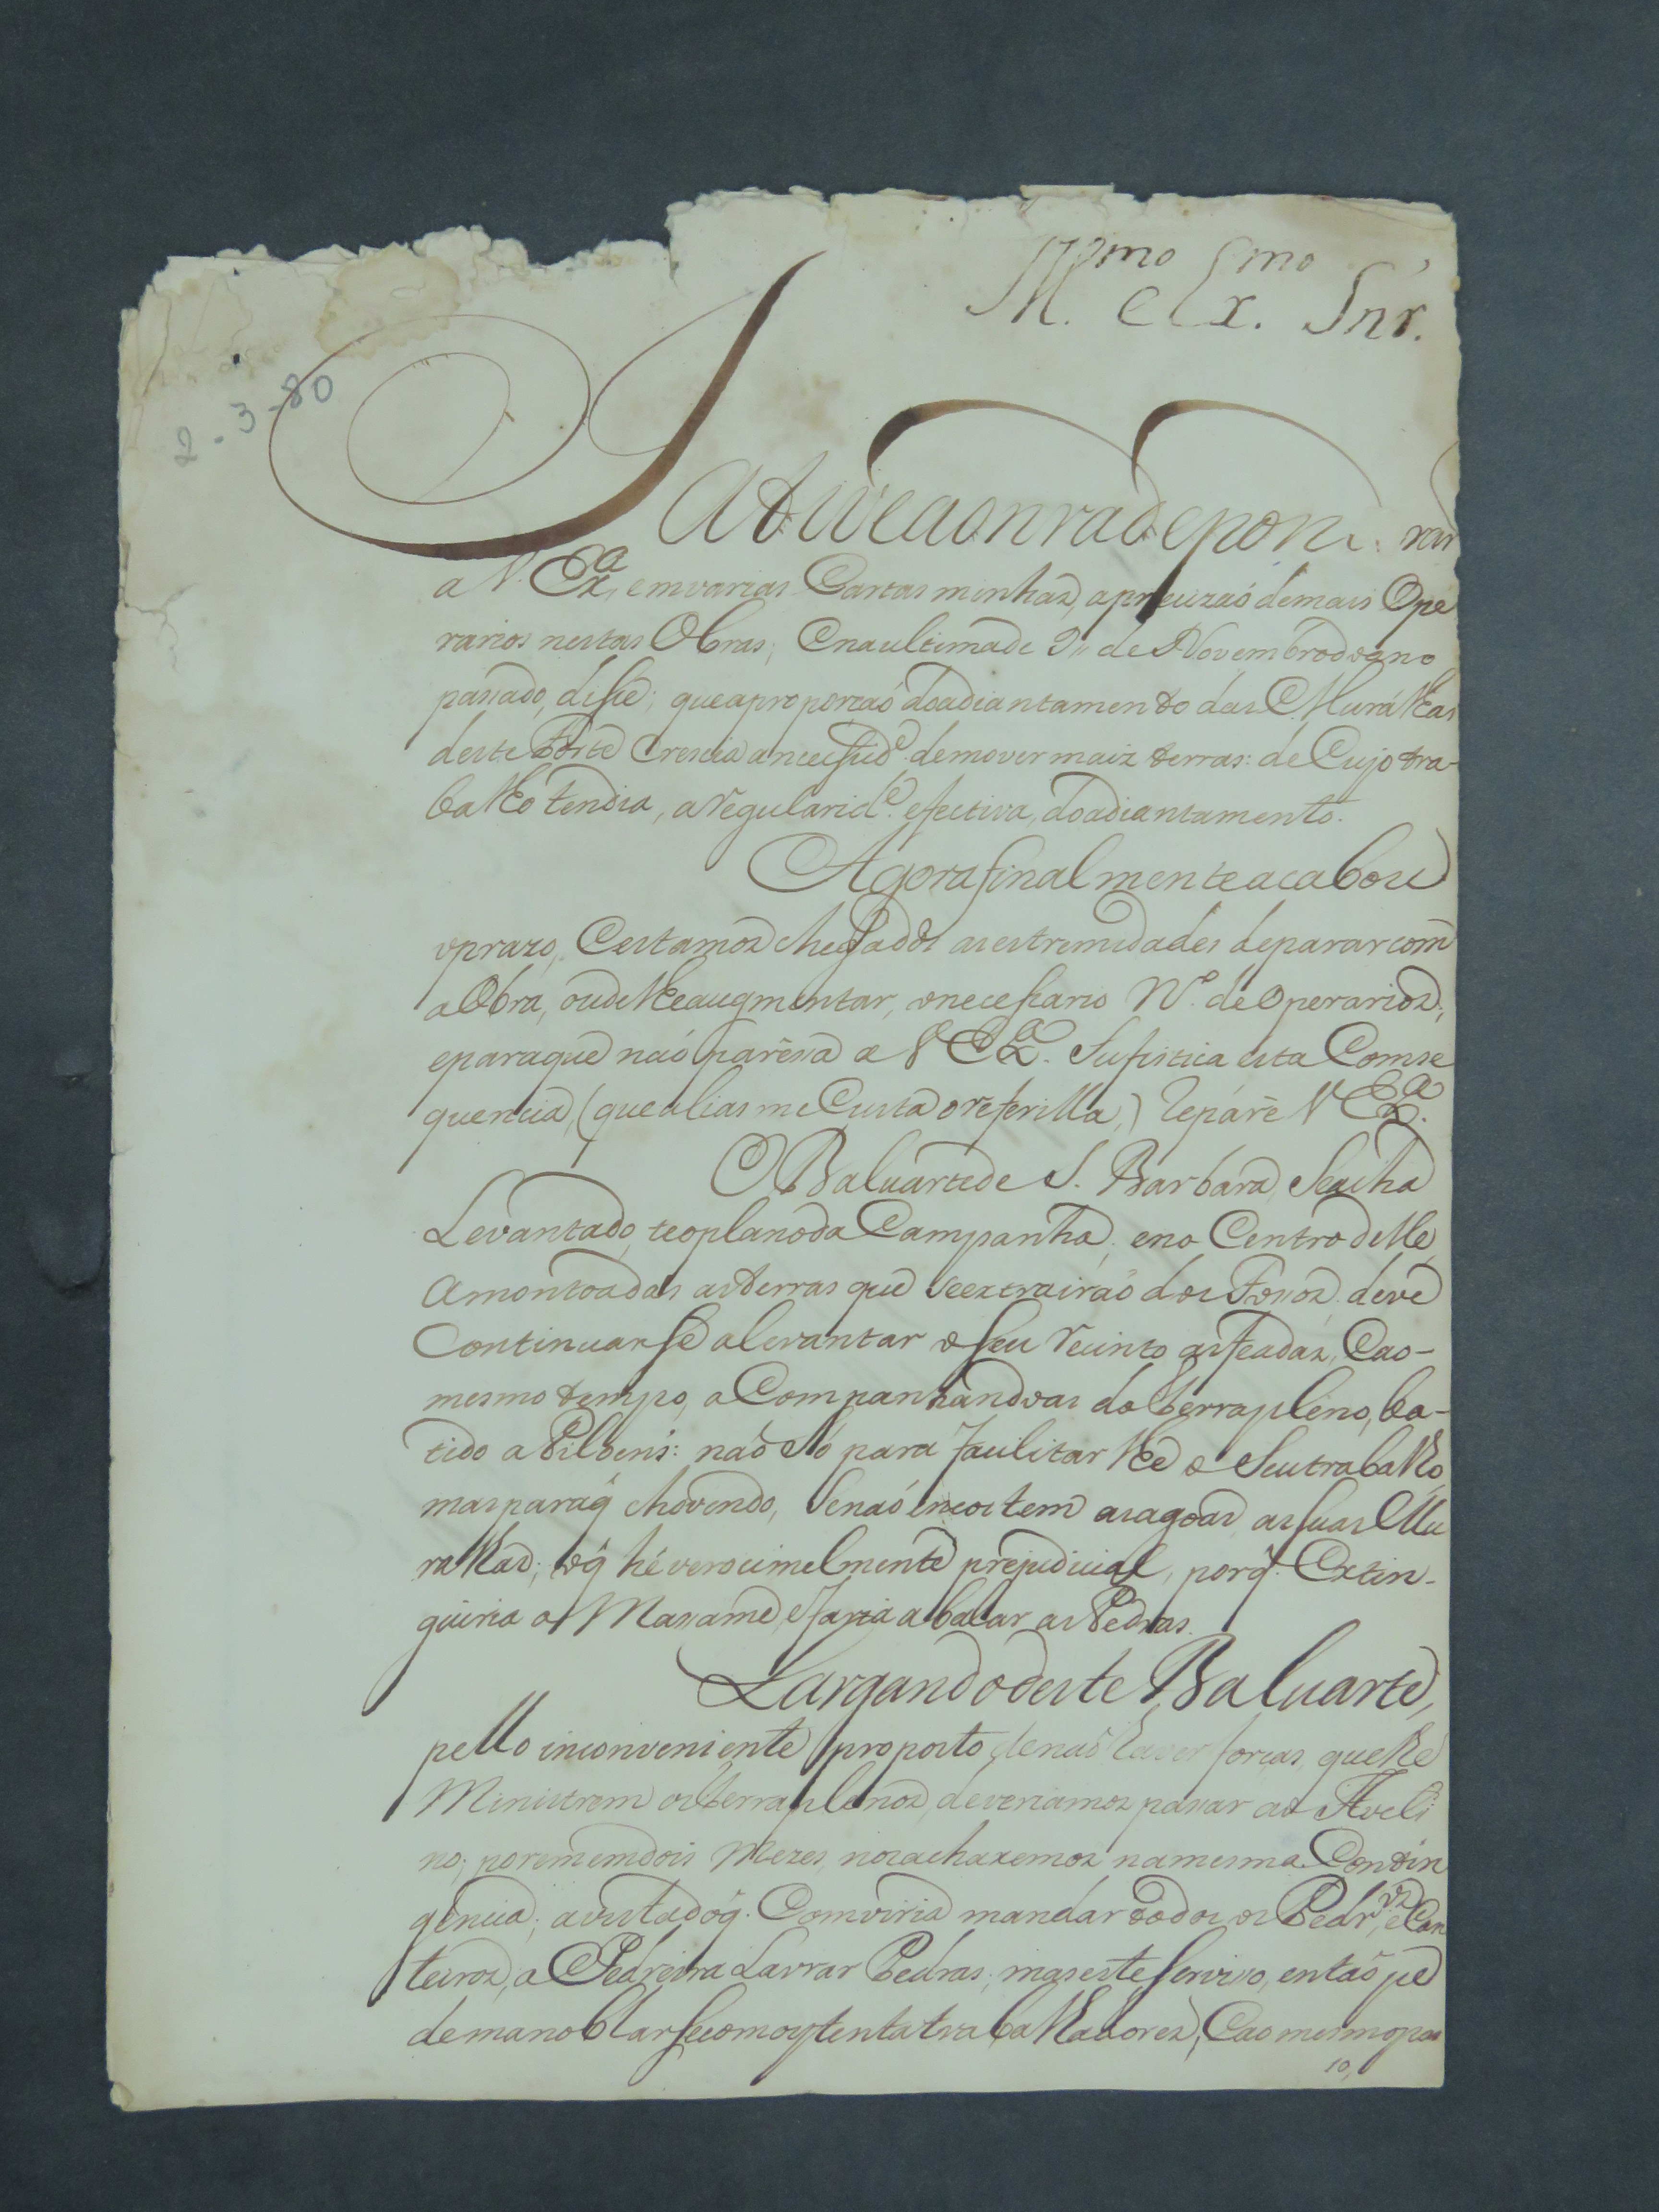 Ill.mo e Ex.mo Snr.
2-3-80
Já tive a onra de pon. rar
a V. Ex.a, em varias Cartas minhas, a precizaó de mais Ope
rarios nestas Obras; E na ultima de 9,, de Novembro do anno
passado, disse; que a proporçaó do adiantamento das Murálhas
deste Forte Crescia a necessid.e de mover maiz terras: de Cujo tra-
balho tendia, a regularid.e efectiva, do adiantamento.
Agora finalmente acabou
o prazo, E estamos chegados as estremidades de parar com
a Obra, ou de lhe augmentar, o necessario N.o de Operarios;
e para que naó paréssa a V Ex.a Sufistica esta Conse
quencia, (que alias me Custa o referilla,) repáre V Ex.a
O Baluarte de S. Barbara, Se acha
Levantado, te o plano da Campanha; e no Centro delle
amontoadas as terras que se extrairaó dos Fossos: deve
Continuarse a levantar o seu recinto as feadas, E ao-
mesmo tempo, aCompanhandoas do terrapléno, ba-
tido a Piloens: naó só para facilitarlhe o Seu trabalho,
mas para q̃ chovendo, Senaó encostem as agoas, as suas Mu
ralhas; o q̃ hé verocimelmente prejudicial, por q̃ Extin-
guiria os Massame, e faria abalar as Pedras.
Largando deste Baluarte,
pello inconveniente proposto de naó haver forças, que lhe
Ministrem os terraplenos, deveriamos passar ao Aveli
no; porem em dois Mezes, nos acharemos na mesma Contin
gencia; a vista do q̃. Comviria mandar todos os Pedr.os, e Can
teiros, a Pedreira Lavrar Pedras; mas este serviso, entaó pe
de manoblarse com oytenta trabalhadores, E ao mesmo pa
10,